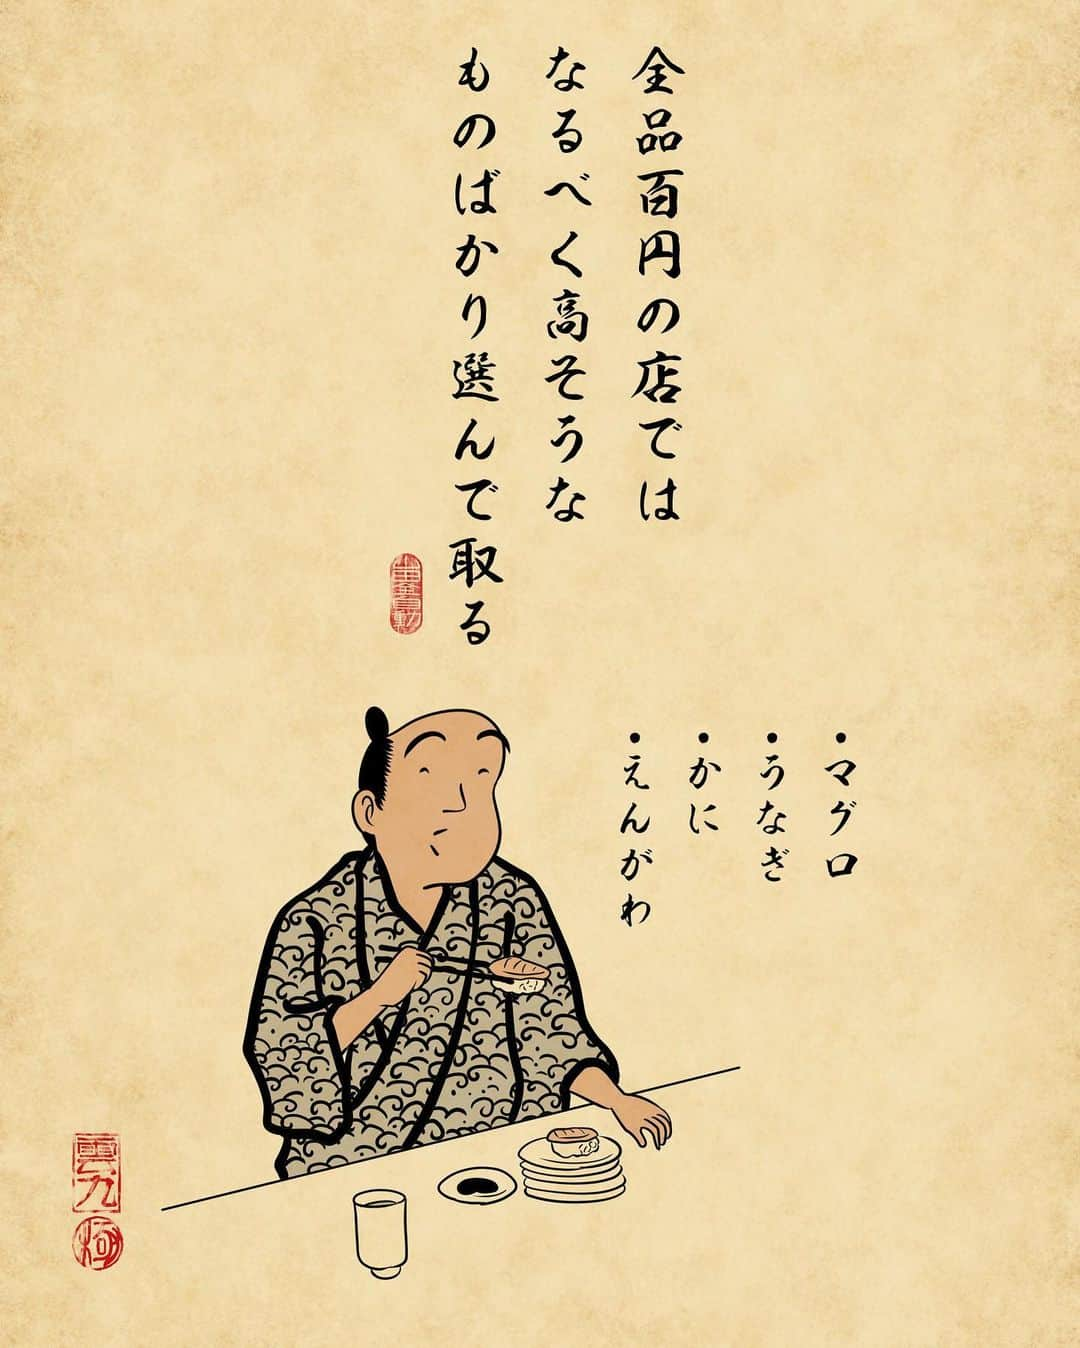 全品百円の店では
なるべく高そうな
ものばかり選んで取る
・マグロ
・うなぎ
・かに
・えんがわ